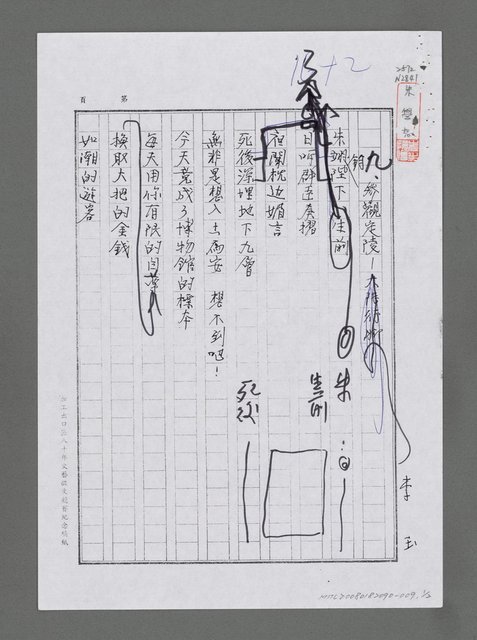 15+2
第 頁
九、參觀定陵—
朱翊鈞陛下 生前
日呼群臣奏摺
夜闌枕边媚言
死後深埋地下九層
無非是想入土為安 想不到吧！
今天竟成了博物館的標本
每天用你有限的自尊
換取大把的金錢
如潮的遊客
朱
生前
死後
李玉
加工出口區八十年文藝徵文競賽紀念稿紙